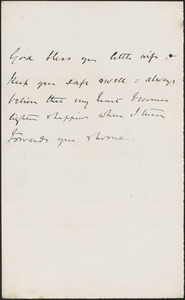 God bless you little wife, &
keep you safe & well; always
believe that my heart becomes
lighter & happier when I turn
towards you & home.